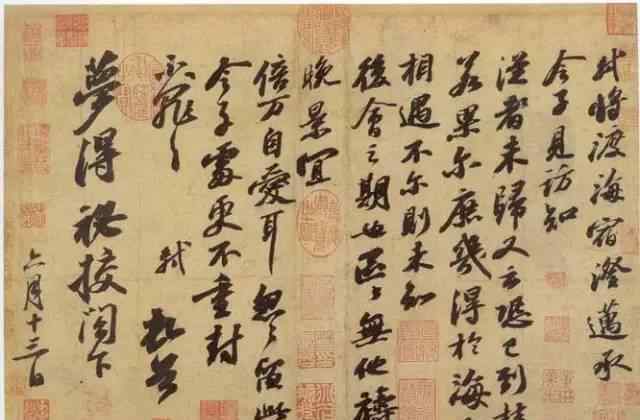 軾將渡海宿澄邁承
令子見訪知
從者未歸又云恐已到桂
若果爾庶幾得於海
相遇不爾則未知
後會之期也區々無他禱
晚景宜
倍万自愛耳忽々留此
令子處更不重封
不罪々
軾頓首
夢得祕校閣下
六月十三日